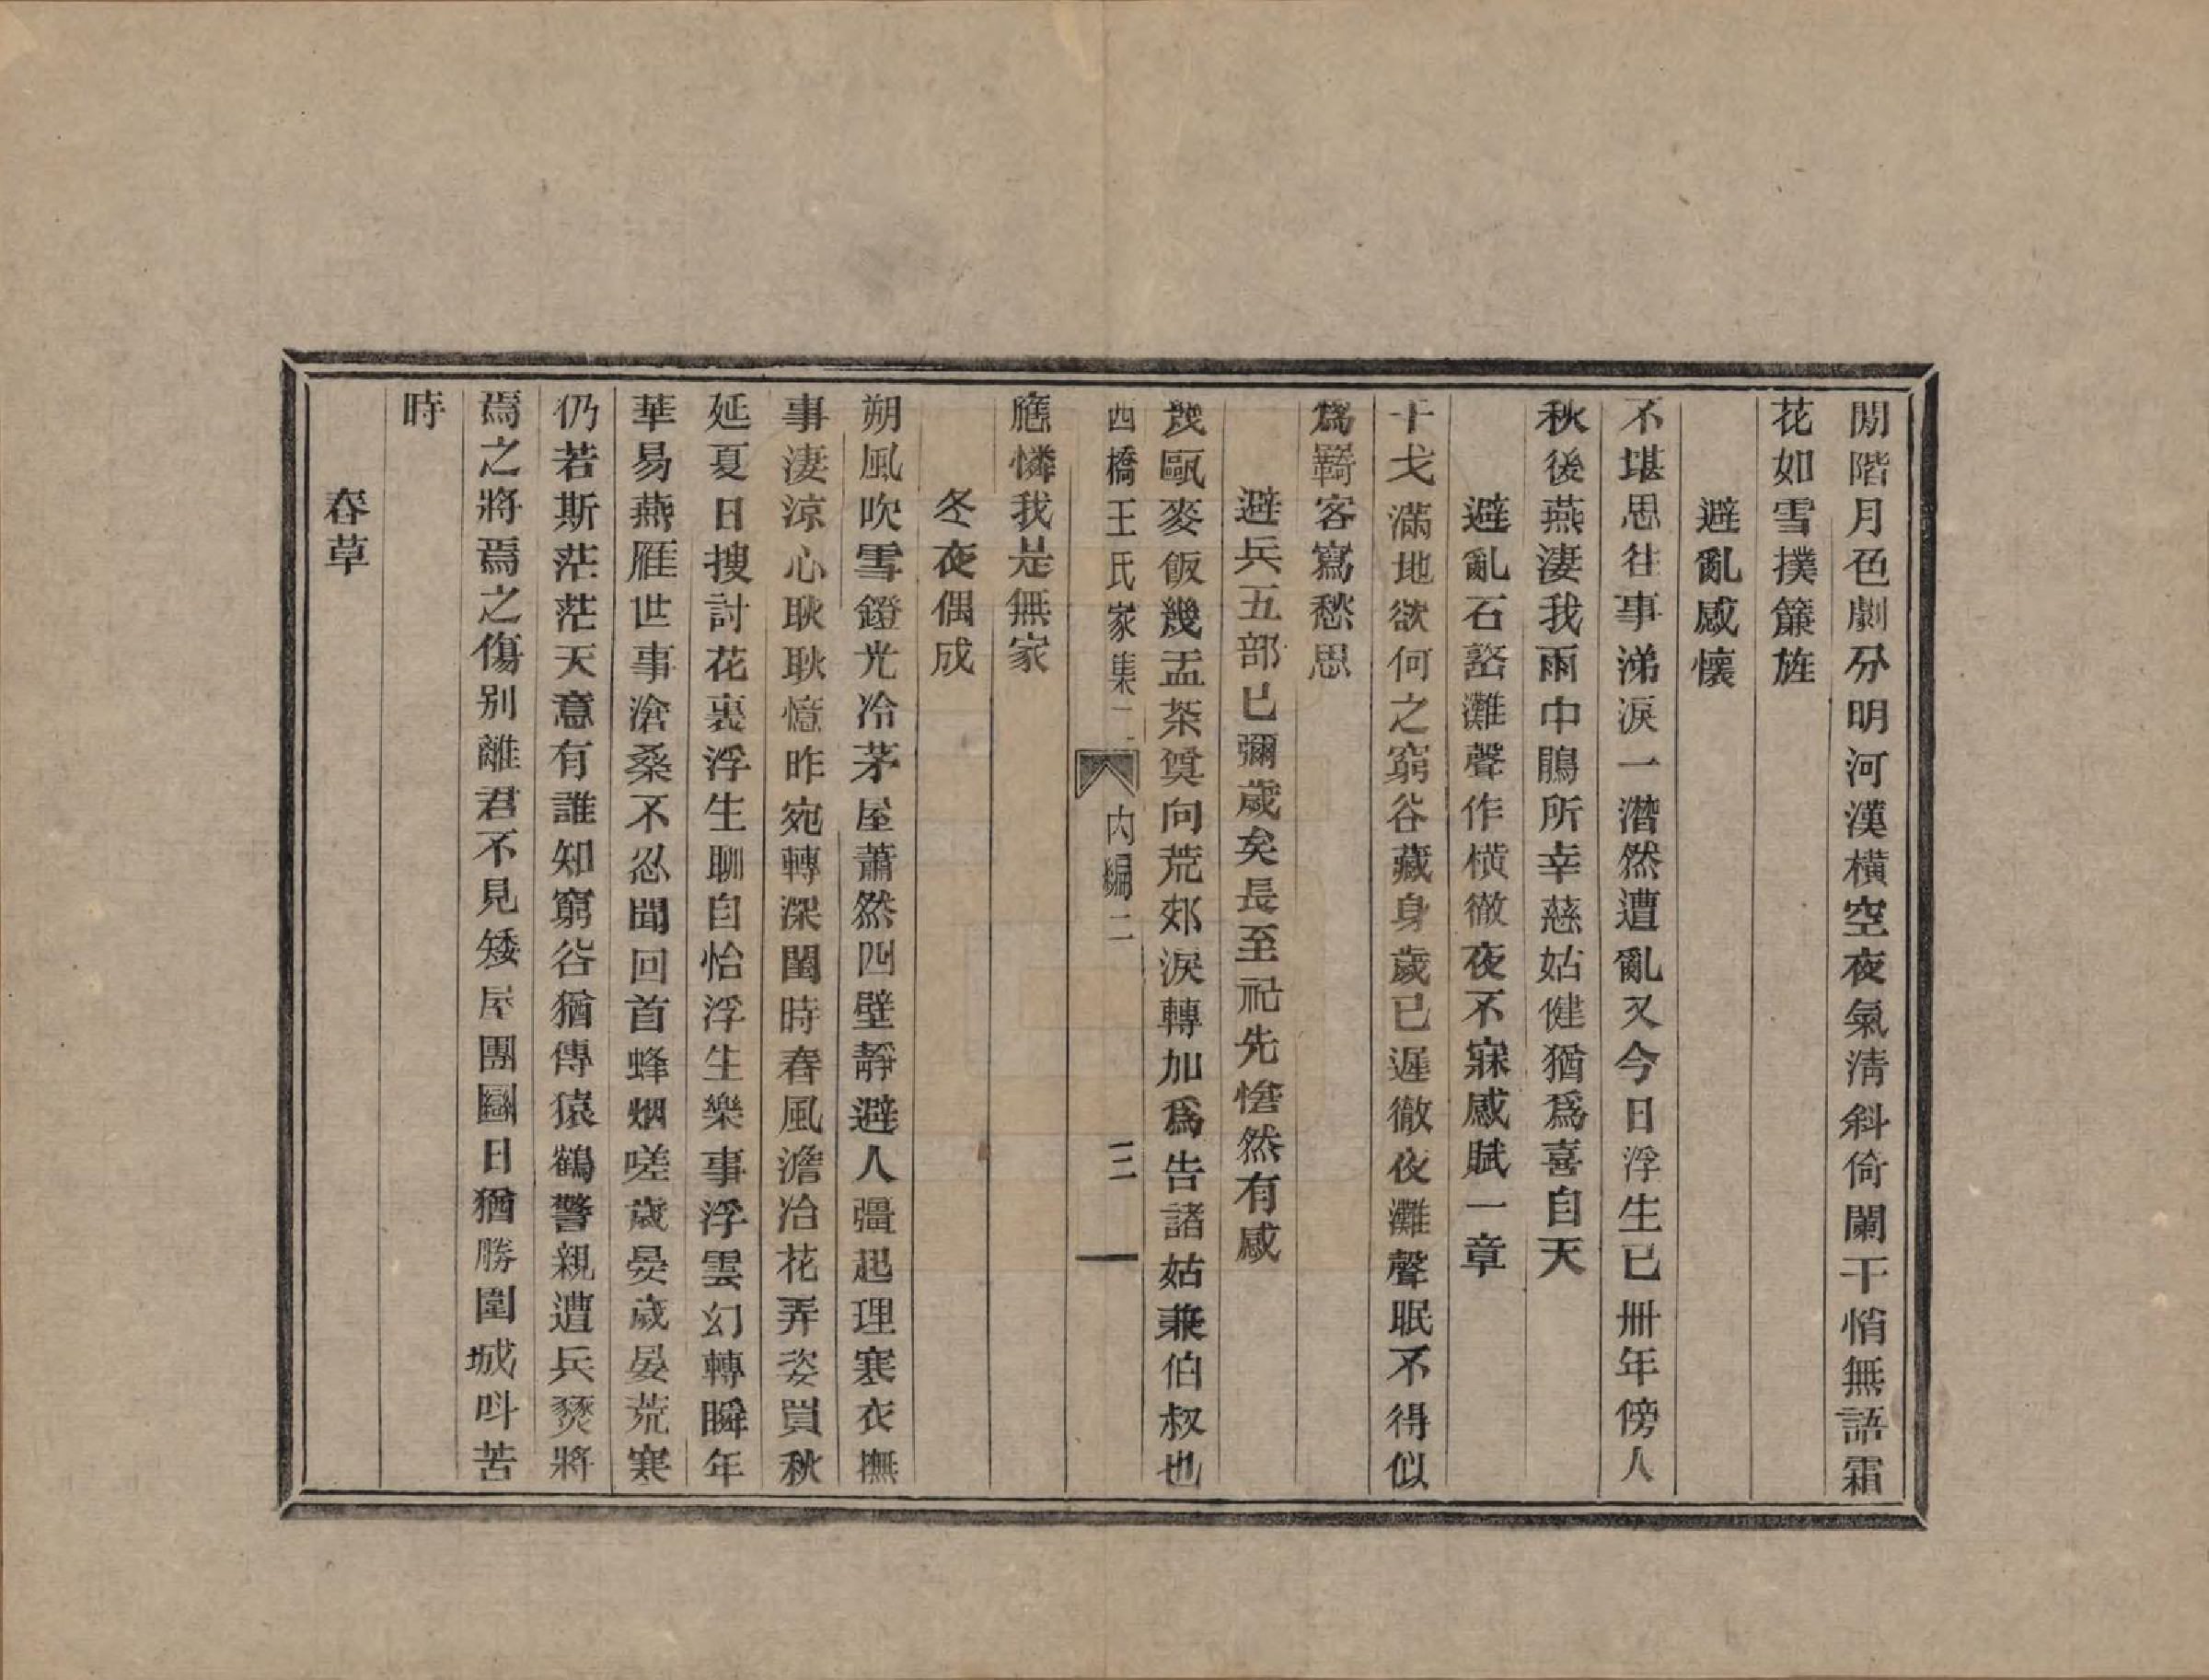 閒階月色劇分明河漢橫空夜氣淸斜倚闌干悄無語霜
花如雪撲簾旌
避亂感懷
不堪思往事涕淚一潸然遭亂又今日浮生已卌年傍人
秋後燕淒我雨中鵑所幸慈姑健猶爲喜自天
避亂石谽灘聲作橫徹夜不寐感賦一章
干戈滿地欲何之窮谷藏身歲已遲徹夜灘聲眠不得似
爲羇客寫愁思
避兵五部已彌歲矣長至祀先愴然有感
幾甌麥飯幾盂茶奠向荒郊淚轉加爲告諸姑兼伯叔也
西橋王氏家集二 內編二 三
應憐我是無家
冬夜偶成
朔風吹雪鐙光冷茅屋蕭然四壁靜避人彊起理寒衣撫
事淒涼心耿耿憶昨宛轉深閨時春風澹冶花弄姿買秋
延夏日搜討花裏浮生聊自怡浮生樂事浮雲幻轉瞬年
華易燕雁世事滄桑不忍聞回首蜂烟嗟歲晏歲晏荒寒
仍若斯茫茫天意有誰知窮谷猶傳猿鶴警親遭兵燹將
焉之將焉之傷别離君不見矮屋團圞日猶勝圍城呌苦
時
春草